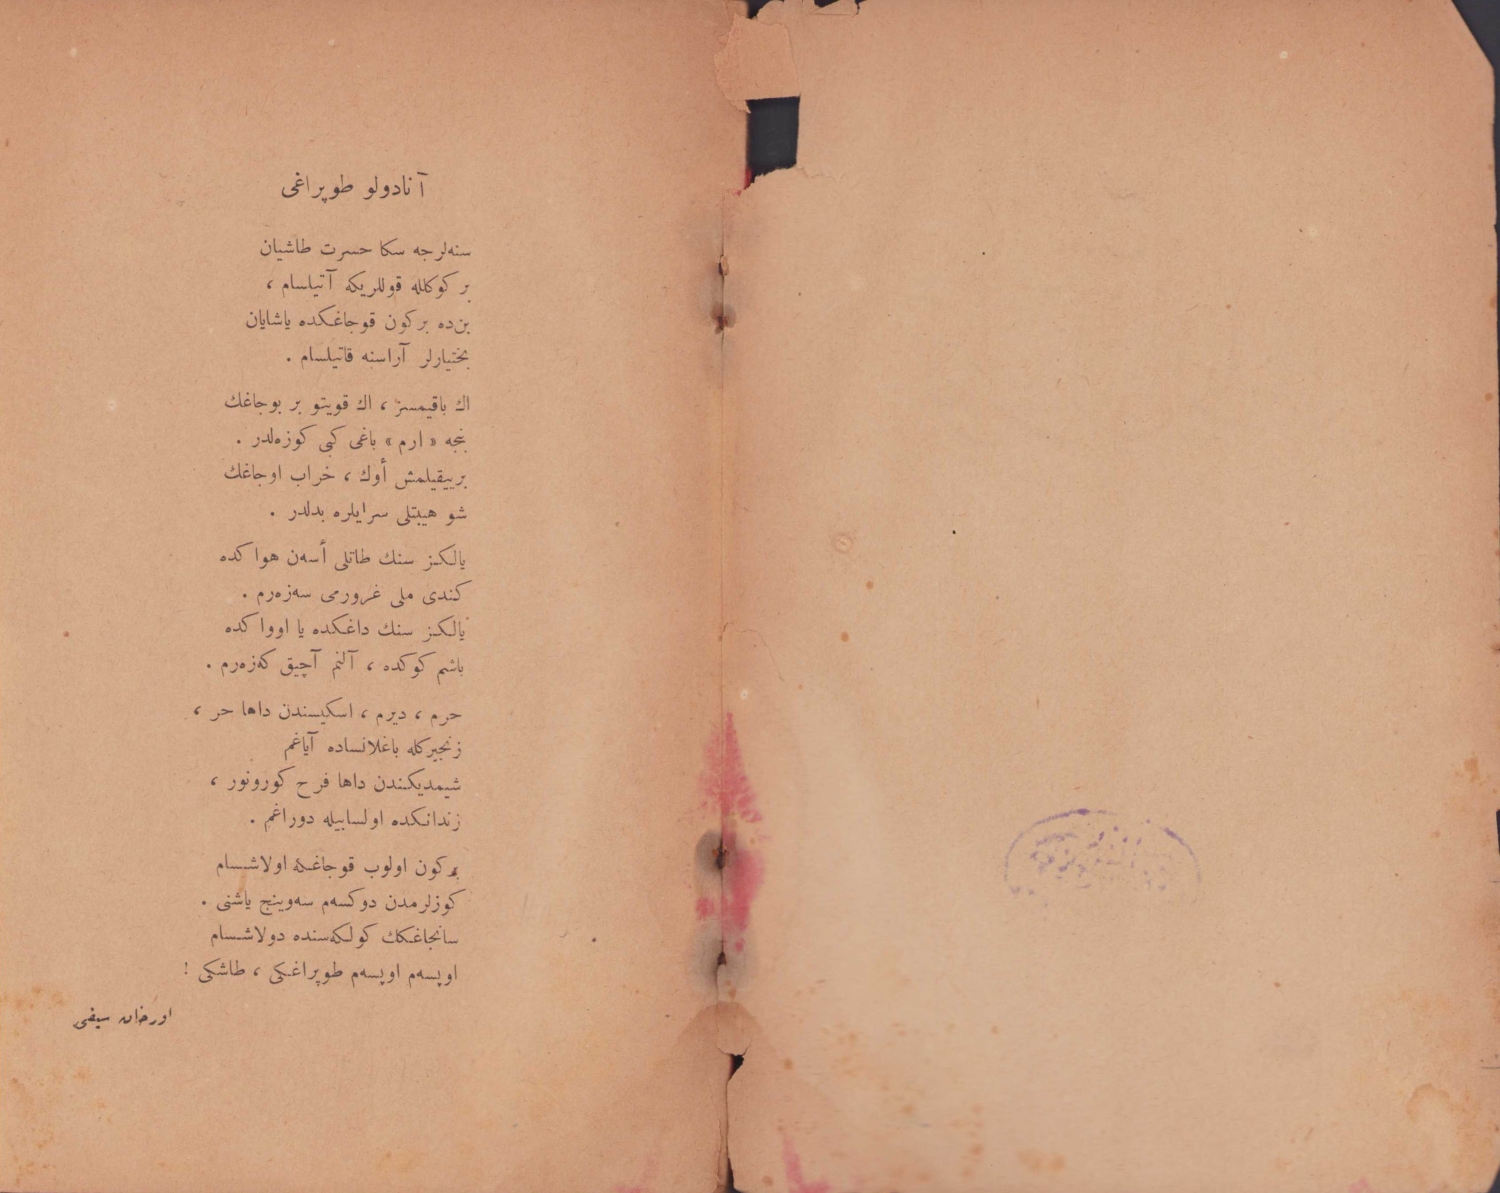 آنادولو طوپراغی
سنه‌لرجه سكا حسرت طاشیان
بر كوكلله قوللریكه آتیلسام ،
بن‌ده بركون قوجاغكده یاشایان
بختیارلر آراسنه قاتیلسام .
اك باقیمسز ، اك قویتو بر بوجاغك
بنجه « ارم » باغی كبی كوزه‌لدر .
بر ییقیلمش أوك ، خراب اوجاغك
شو هیبتلی سرایلره بدلدر .
یالكز سنك طاتلی أسه‌ن هواكده
كندی ملی غرورمی سه‌زه‌رم .
یالكز سنك داغكده یا اوواكده
باشم كوكده ، آلنم آچیق كه‌زه‌رم .
حرم ، دیرم ، اسكیسندن داها حر ،
زنجیركله باغلانساده آیاغم
شیمدیكندن داها فرح كورونور ،
زندانكده اولسابیله دوراغم .
بركون اولوب قوجاغكه اولاشسام
كوزلرمدن دوكسه‌م سه‌وینج یاشنی .
سانجاغكك كولكه‌سنده دولاشسام
اوپسه‌م اوپسه‌م طوپراغكی ، طاشكی !
اورخان سیفی